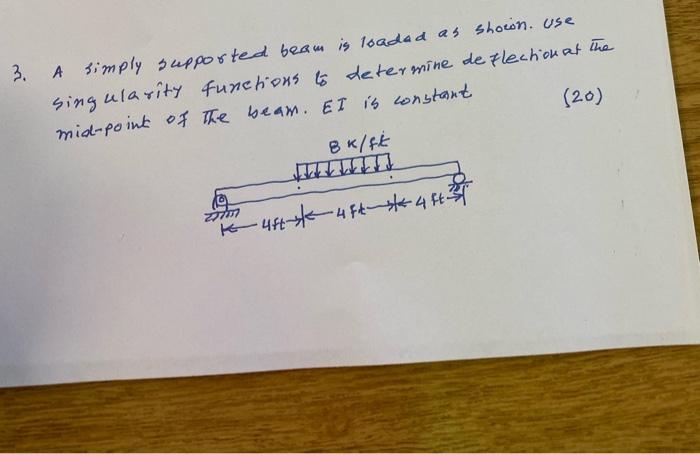 3. A simply supported beam is loaded as shown. Use
singularity functions to determine deflection at the
mid-point of the beam. EI is constant (20)
8 K/ft
4ft 4 ft 4 ft